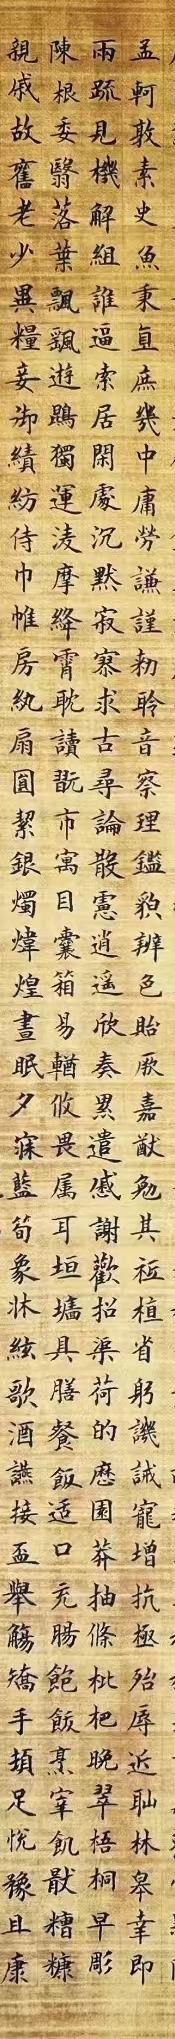 孟軻敦素史魚秉直庶幾中庸勞謙謹勑聆音察理鑑貌辨色貽厥嘉猷勉其祗植省躬譏誡寵增抗極殆辱近耻林皋幸即
兩疏見機解組誰逼索居閑處沉默寂寥求古尋論散慮逍遥欣奏累遣慼謝歡招渠荷的歷園莽抽條枇杷晚翠梧桐早彫
陳根委翳落葉飄颻遊鵾獨運淩摩絳霄耽讀翫市寓目囊箱易輶攸畏属耳垣墻具膳餐飯适口充腸飽飫烹宰飢猒糟糠
親戚故舊老少異糧妾御績紡侍巾帷房紈扇圓絜銀燭煒煌晝眠夕寐藍筍象牀絃歌酒讌接盃舉觴矯手頓足悅豫且康